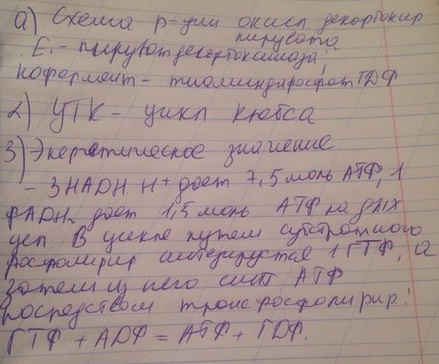 а) Схема р-ции окисл декарбокир
пирувата
Е1 - пируватдекарбоксилаза;
кофермент - тиаминдифосфат ТДФ
2) ЦТК - цикл Кребса
3) Энергетическое значение
- 3НАДН Н+ дает 7,5 моль АТФ, 1
ФАДН2 дает 1,5 моль АТФ на дых
цеп. В цикле путем субстратного
фосфорилир синтезируется 1 ГТФ, а
затем из него синт АТФ
посредством трансфосфорилир:
ГТФ + АДФ = АТФ + ГДФ.